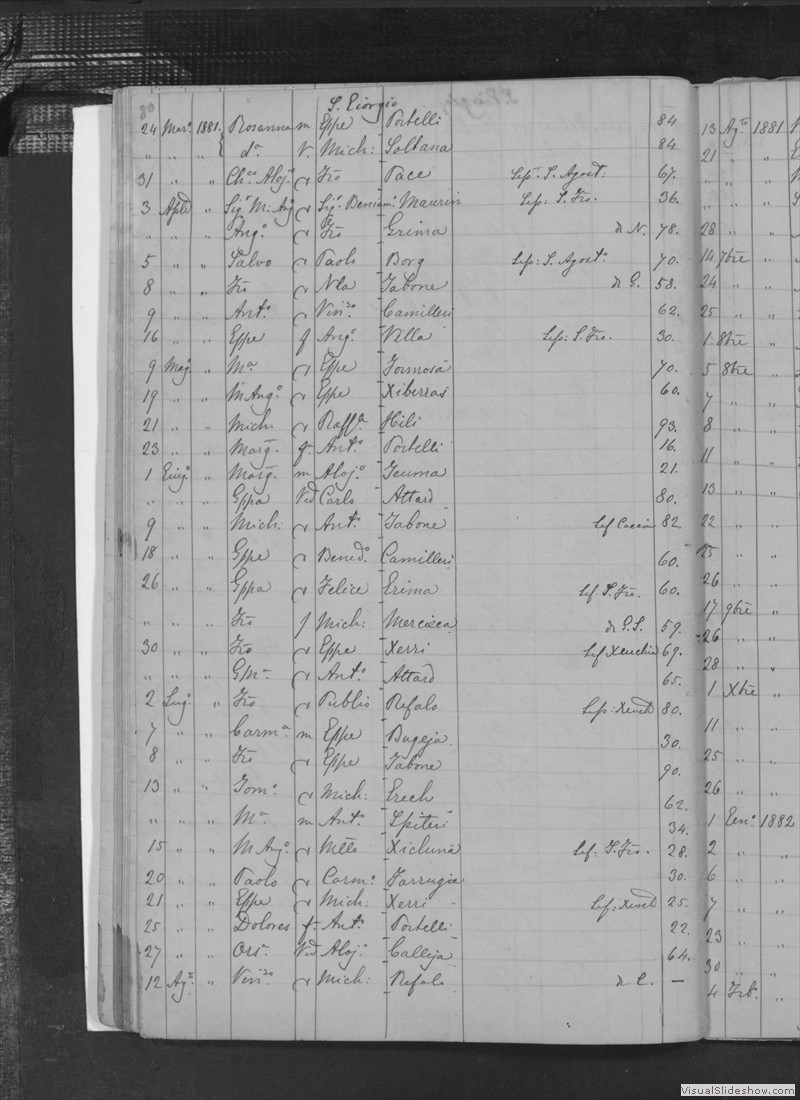 80
S. Giorgio
24 Mar. 1881. Rosanna m Eppe Portelli 84
" " " { da V. Mich: Soltana 84
31 " " Chco Aloj. Fro Pace Sepr S. Agost: 67.
3 Aple " Sigr M. Ang Sigr Beniam: Maurin Sepr: S. Fro. 36.
" " " Ang.o Fro Grima N. 78.
5 " " Salvo Paolo Borg Sep: S. Agosto 70.
8 " " Fro Nla Tabone G. 58.
9 " " Ant.o Vin.zo Camilleri 62.
16 " " Eppe f Ang.o Vella Sep: S. Fro. 30.
9 Mag " M.a Eppe Formosa 70.
19 " " M Ang.o Eppe Xiberras 60.
21 " " Mich. Raff.a Hili 93.
23 " " Marg. f. Ant.o Portelli 16.
1 Giug.o " Marg. m Aloj.o Teuma 21.
" " " Eppa Vid Carlo Attard 80.
9 " " Mich. Ant.o Tabone Sep Caccia 82.
18 " " Eppe Bened.o Camilleri 60.
26 " " Eppa Felice Grima Sep S. Fro. 60.
" " " Fro f Mich: Mercieca G.S. 59.
30 " " Fro Eppe Xerri Sep Xeuchia 69.
" " " GM.a Ant.o Attard 65.
2 Lug.o " Fro Publio Refalo Sep: Xeuch 80.
7 " " Carm.a m Eppe Bugeja 30.
8 " " Fro Eppe Tabone 90.
13 " " Tom.o Mich: Grech 62.
" " " M.a m Ant.o Spiteri 34.
15 " " M Ang.o Mtto Xicluna Sep: S. Fro. 28.
20 " " Paolo Carm.o Farrugia 30.
21 " " Eppe Mich: Xerri Sep: Xeuch 25.
25 " " Dolores f Ant.o Portelli 22.
27 " " Ors.a Vid Aloj.o Calleja 64.
12 Ag.to " Vin.zo Mich: Refalo C. —
13 Ag.to 1881
21 " "
" "
" "
28 " "
14 7bre "
24 " "
25 " "
1 8bre "
5 8bre "
7 " "
8 " "
11 " "
13 " "
22 " "
25 " "
26 " "
17 9bre "
26 " "
28 " "
1 Xbre "
11 " "
25 " "
26 " "
1 Gen.o 1882
2 " "
6 " "
7 " "
23 " "
30 " "
4 Feb. "
VisualSlideshow.com